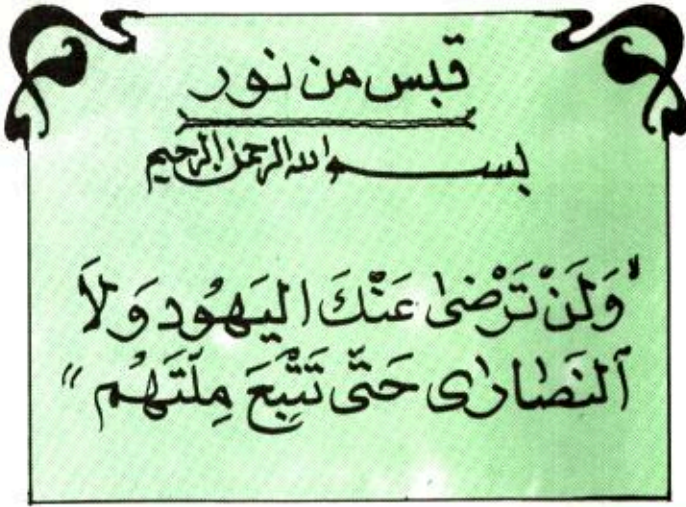 قبس من نور
بسم الله الرحمن الرحيم
"وَلَنْ تَرْضىٰ عَنْكَ اليَهُود وَلاَ
ٱلنَصَارٰى حَتّى تَتَّبِعَ مِلّتَهُم"